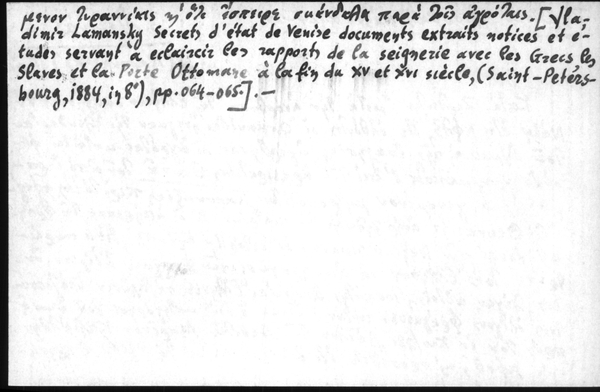 μενον τυραννίαις ἢ ὅτι ἔσπειρε σκάνδαλα παρὰ τοῖς ἀγρόταις.-[Vla-
dimir Lamansky Secrets d'état de Venise documents extraits notices et é-
tudes servant à eclaircir les rapports de la seignerie avec les Grecs les
Slaves et la Porte Ottomane à la fin du XV et XVI siècle, (Saint-Peters-
bourg, 1884, in 8°), pp. 064-065].-